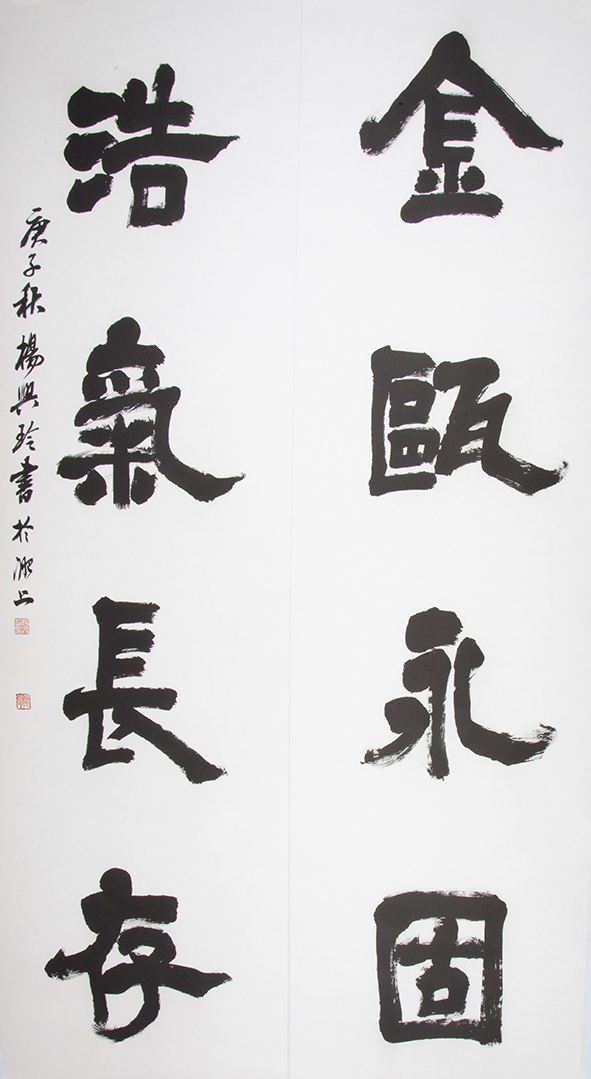 金甌永固
浩氣長存
庚子秋楊興玲書於湖上